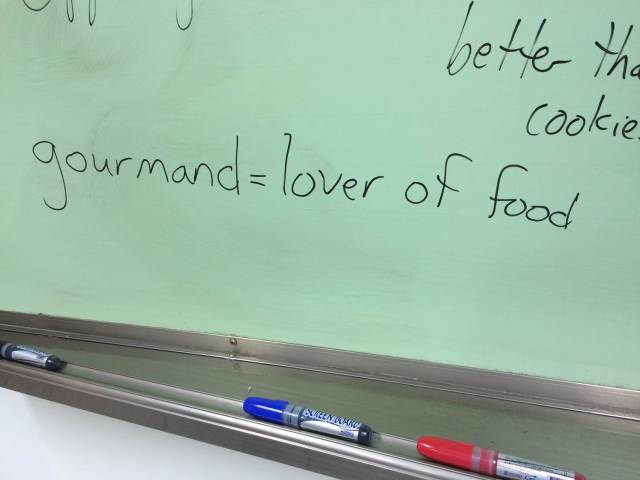 better tha
cookie
gourmand = lover of food
SCREEN BOARD